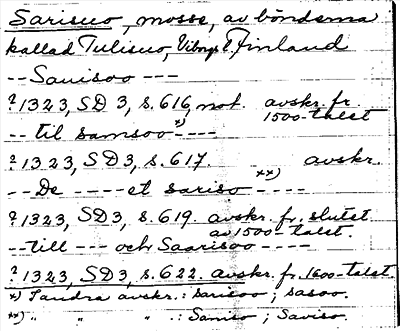 Sarisuo, mosse, av bönderna
kallad Tulisuo, Viborgs l., Finland
-- Sauisoo ---
? 1323, SD 3, s. 616, not. avskr. fr. 1500-talet
-- til samsoo *) ----
? 1323, SD 3, s. 617. avskr.
-- De ----- et sariso **) ----
? 1323, SD 3, s. 619. avskr. fr. slutet av 1500-talet.
-- till --- och Saarisoo ----
? 1323, SD 3, s. 622. avskr. fr. 1600-talet.
*) Andra avskr.: sarisoo; sasoo.
**) " " " .: Samiso; Saviso.